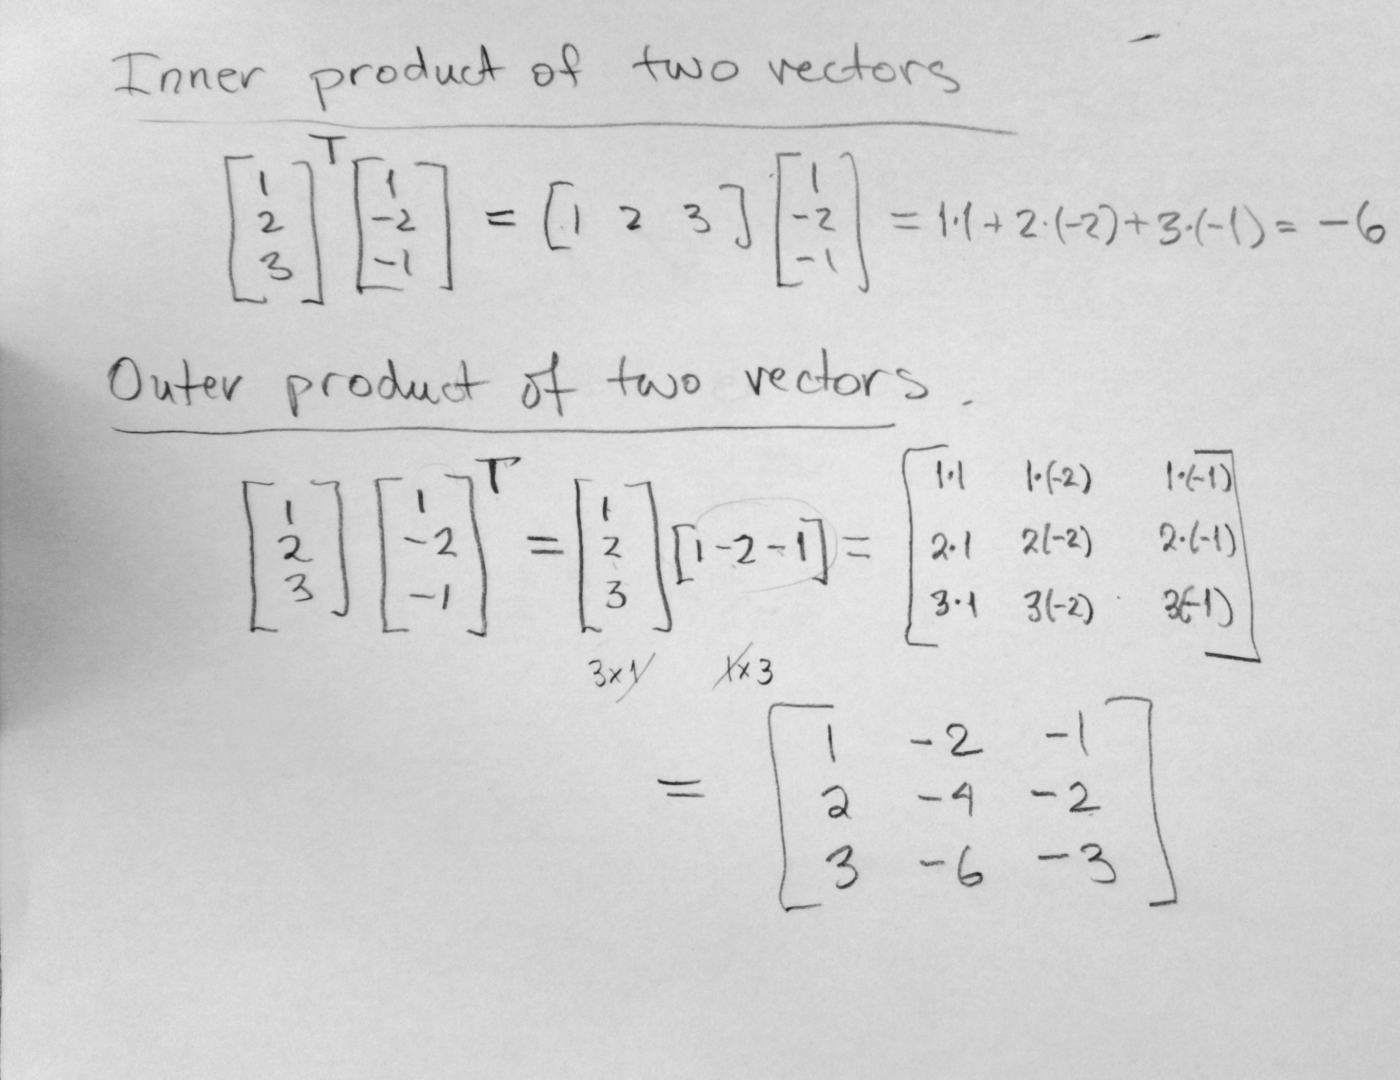 Inner product of two vectors
[1 2 3]ᵀ [1 -2 -1] = [1 2 3] [1 -2 -1] = 1·1+2·(-2)+3·(-1) = -6
Outer product of two vectors.
[1 2 3] [1 -2 -1]ᵀ = [1 2 3] [1 -2 -1] = [1·1 1·(-2) 1·(-1)
2·1 2(-2) 2·(-1)
3·1 3(-2) 3(-1)]
3×1 1×3
= [1 -2 -1
2 -4 -2
3 -6 -3]